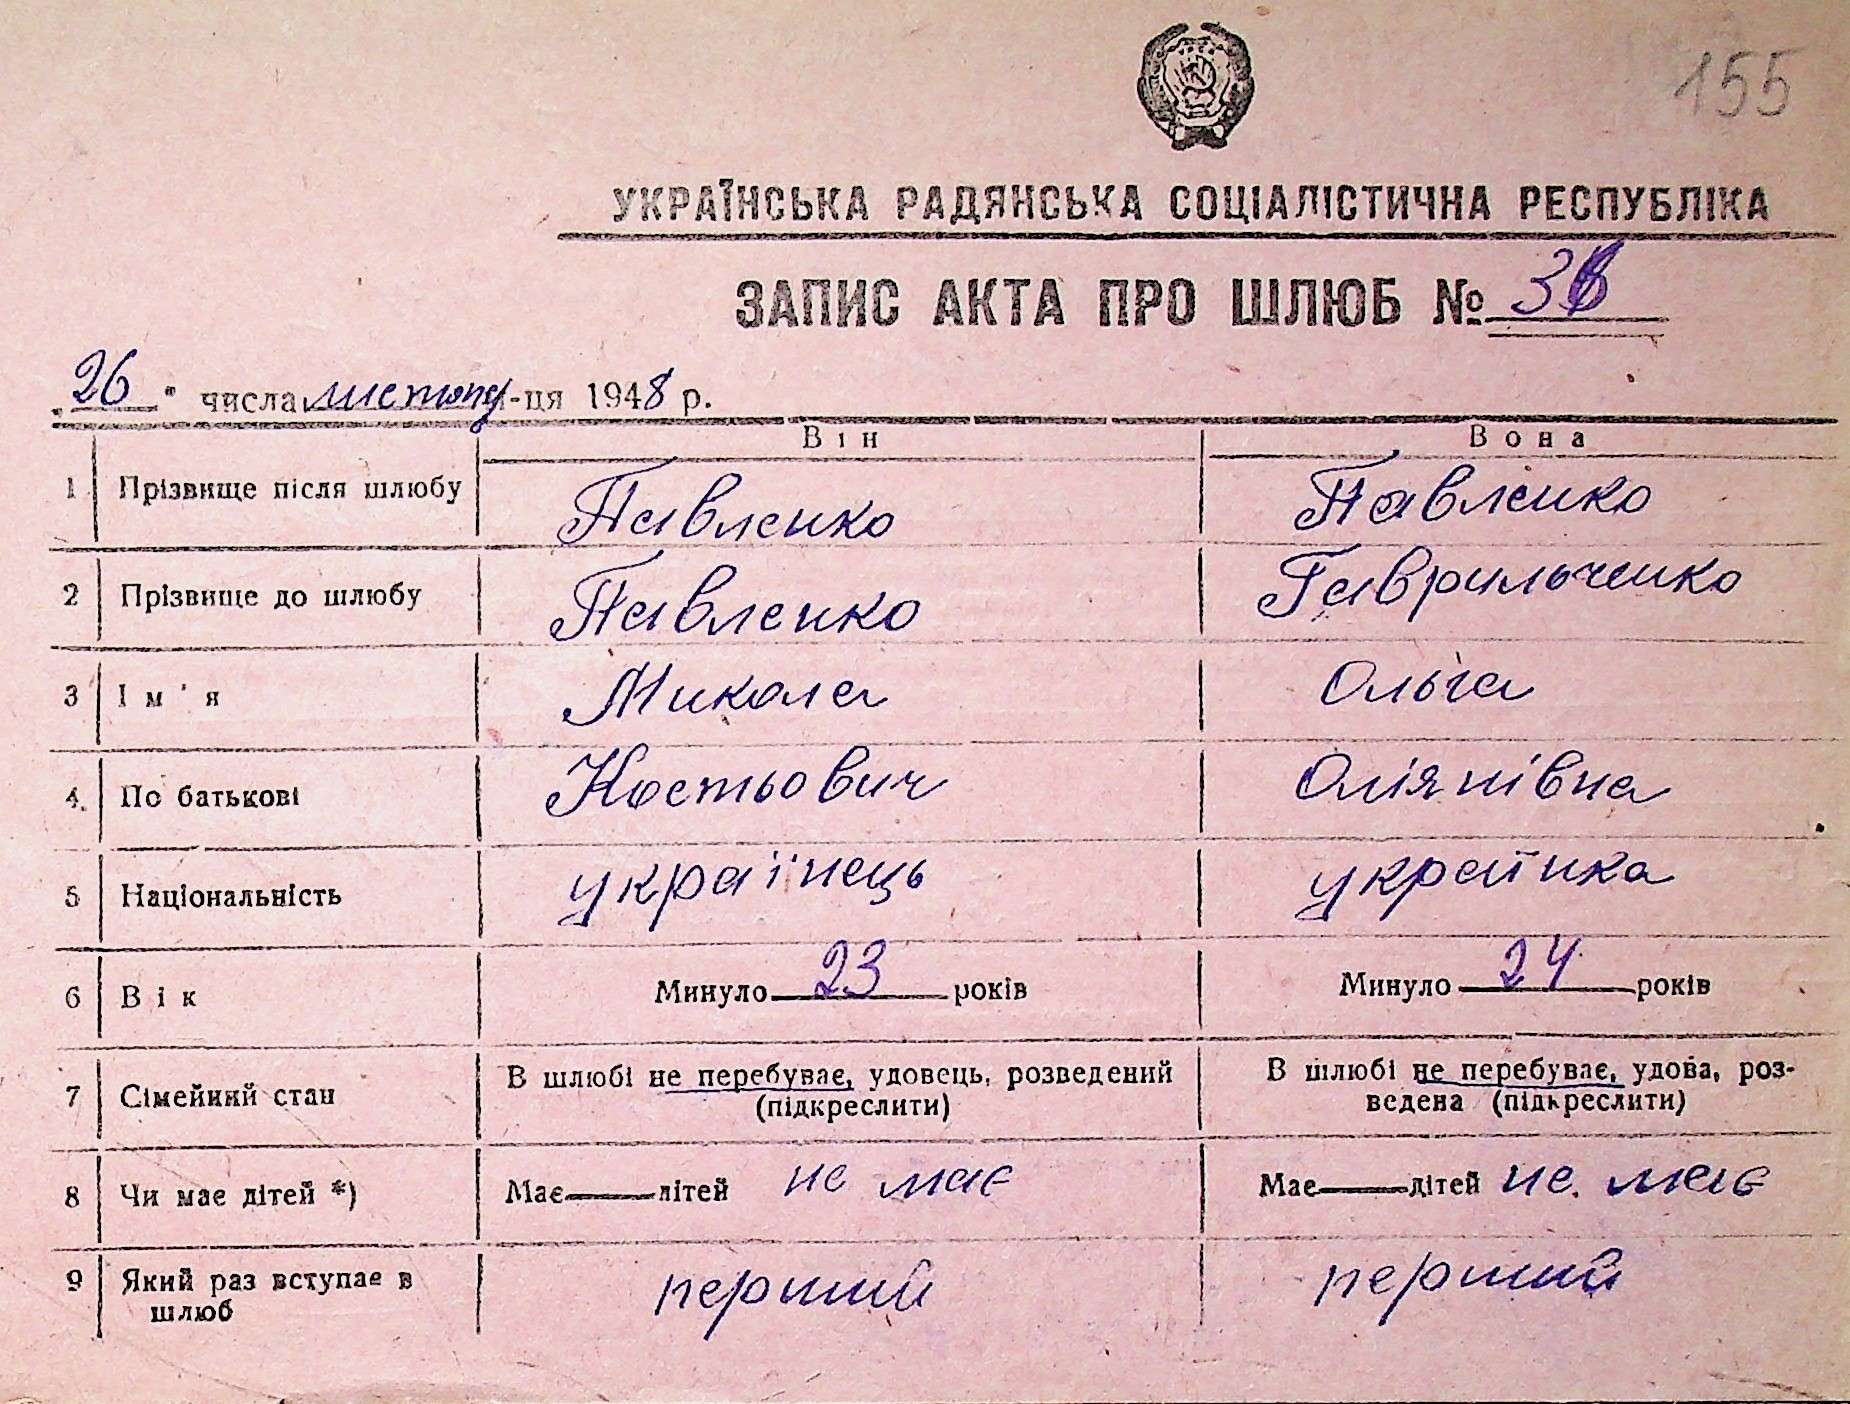 155
УКРАЇНСЬКА РАДЯНСЬКА СОЦІАЛІСТИЧНА РЕСПУБЛІКА
ЗАПИС АКТА ПРО ШЛЮБ №
„26" числа листопад-ця 1948 р.
Він Вона
1 Прізвище після шлюбу Павленко Павленко
2 Прізвище до шлюбу Павленко Гаврильченко
3 Ім'я Микола Ольга
4. По батькові Костьович Оліянівна
5 Національність українець українка
6 Вік Минуло 23 років Минуло 24 років
7 Сімейний стан В шлюбі не перебуває, удовець, розведений В шлюбі не перебуває, удова, роз-
(підкреслити) ведена (підкреслити)
8 Чи має дітей *) Має дітей не має Має дітей не має
9 Який раз вступає в перший перший
шлюб